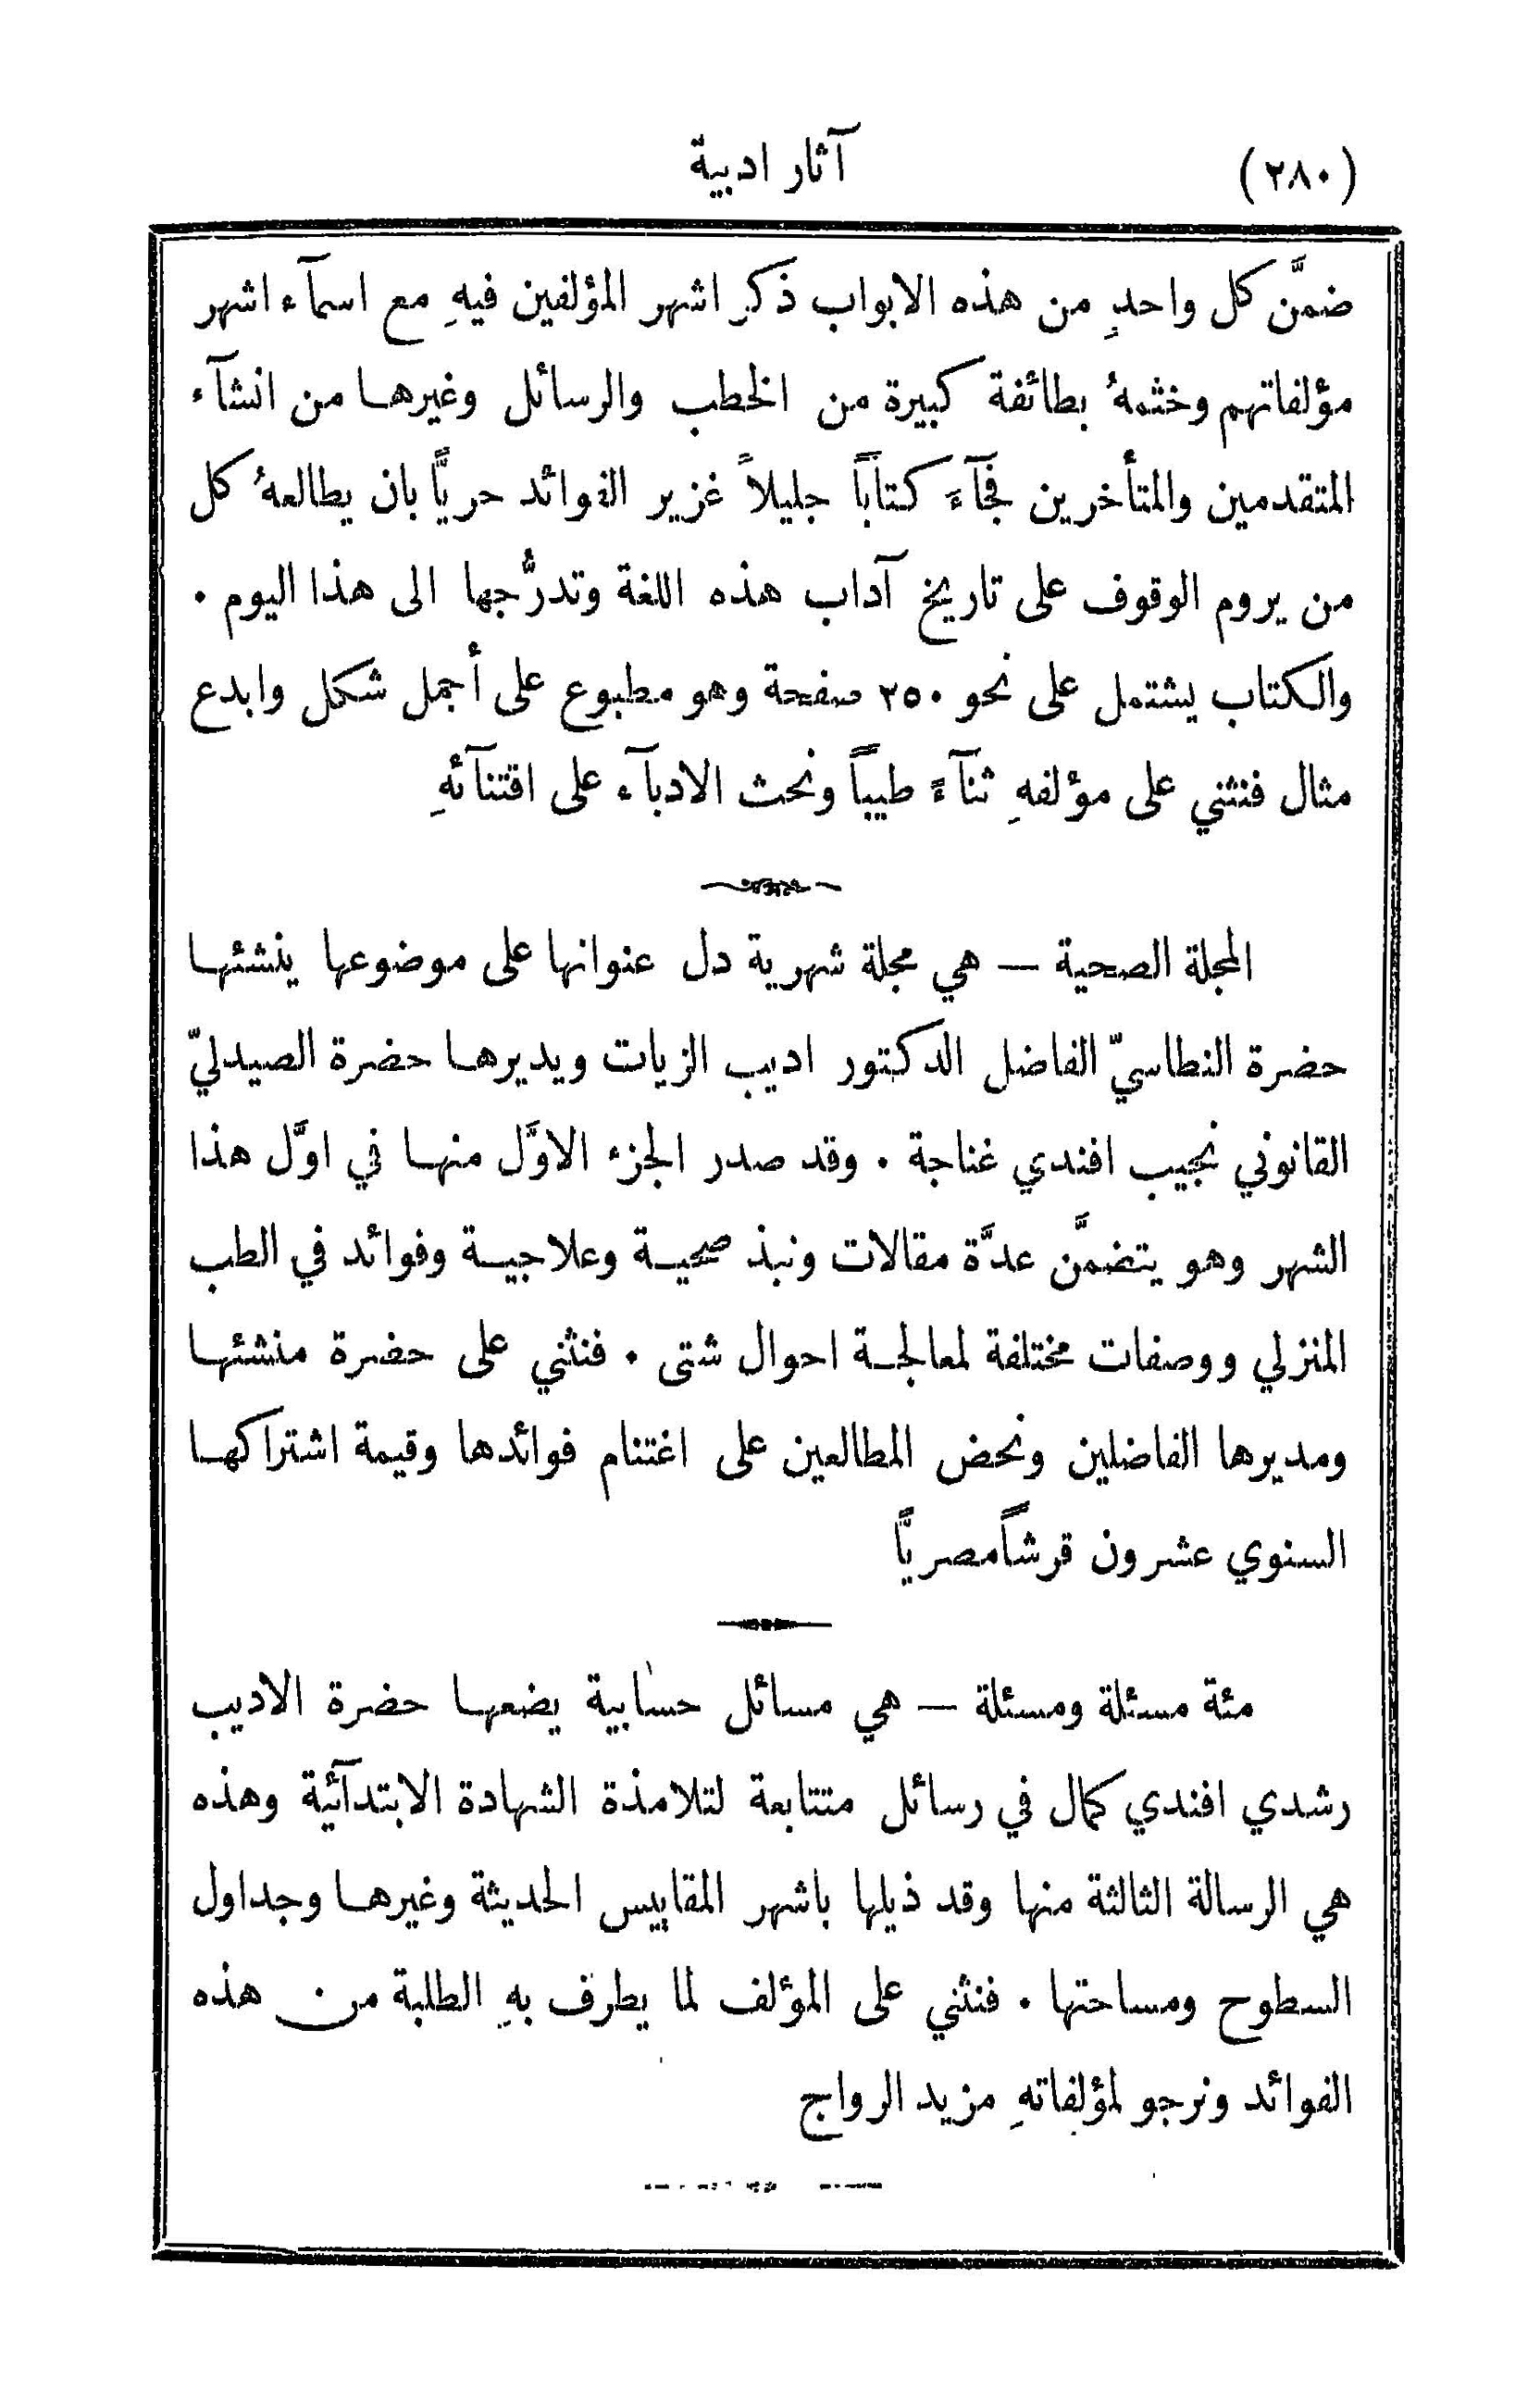 (٢٨٠) آثار ادبية
ضمَّن كل واحدٍ من هذه الابواب ذكر اشهر المؤلفين فيهِ مع اسمآء اشهر
مؤلفاتهم وختمهُ بطائفة كبيرة من الخطب والرسائل وغيرها من انشآء
المتقدمين والمتأخرين فجآءَ كتاباً جليلاً غزير الفوائد حريًّا بان يطالعهُ كل
من يروم الوقوف على تاريخ آداب هذه اللغة وتدرُّجها الى هذا اليوم ٠
والكتاب يشتمل على نحو ٢٥٠ صفحة وهو مطبوع على أجمل شكل وابدع
مثال فنثني على مؤلفهِ ثنآءً طيباً ونحث الادبآء على اقتنآئهِ
المجلة الصحية — هي مجلة شهرية دل عنوانها على موضوعها ينشئها
حضرة النطاسيّ الفاضل الدكتور اديب الزيات ويديرها حضرة الصيدليّ
القانوني نجيب افندي غناجة ٠ وقد صدر الجزء الاوَّل منها في اوَّل هذا
الشهر وهو يتضمَّن عدَّة مقالات ونبذ صحية وعلاجية وفوائد في الطب
المنزلي ووصفات مختلفة لمعالجة احوال شتى ٠ فنثني على حضرة منشئها
ومديرها الفاضلين ونحض المطالعين على اغتنام فوائدها وقيمة اشتراكها
السنوي عشرون قرشاً مصريًّا
مئة مسئلة ومسئلة — هي مسائل حسابية يضعها حضرة الاديب
رشدي افندي كمال في رسائل متتابعة لتلامذة الشهادة الابتدآئية وهذه
هي الرسالة الثالثة منها وقد ذيلها باشهر المقاييس الحديثة وغيرها وجداول
السطوح ومساحتها ٠ فنثني على المؤلف لما يطرف بهِ الطلبة من هذه
الفوائد ونرجو لمؤلفاتهِ مزيد الرواج